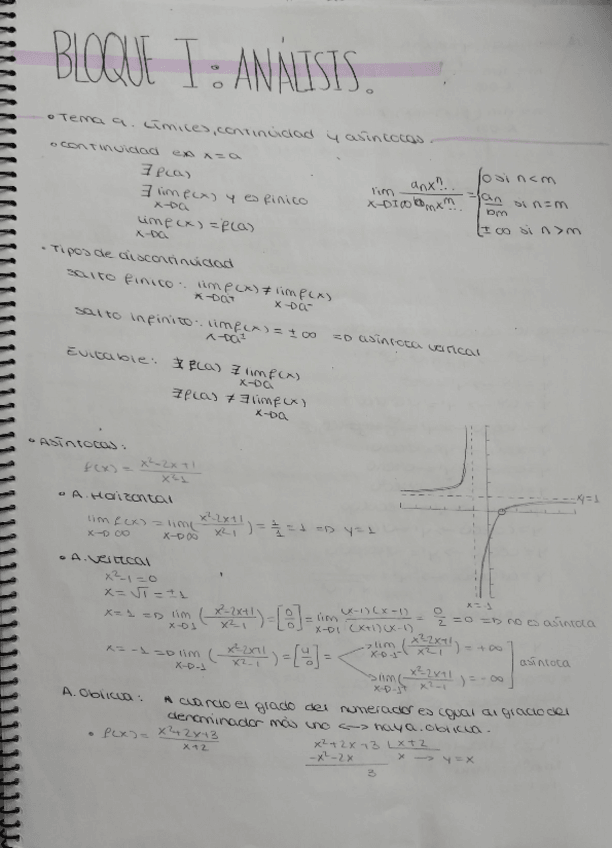 BLOQUE I: ANÁLISIS.
• Tema 9. Límites, continuidad y asíntotas.
• Continuidad en x=a
∃ f(a)
∃ lim f(x) y es finito
x→a
lim f(x) = f(a)
x→a
lim anxⁿ... / bmxᵐ... = { 0 si n<m
x→±∞ an/bm si n=m
±∞ si n>m
• Tipos de discontinuidad
Salto finito: lim f(x) ≠ lim f(x)
x→a⁺ x→a⁻
Salto infinito: lim f(x) = ±∞ ⇒ asíntota vertical
x→a±
Evitable: ∄ f(a) ∃ lim f(x)
x→a
∃ f(a) ≠ ∃ lim f(x)
x→a
• Asíntotas:
f(x) = x²-2x+1 / x²-1
• A. Horizontal
lim f(x) = lim (x²-2x+1 / x²-1) = 1/1 = 1 ⇒ y=1
x→∞ x→∞
y=1
x=-1
• A. Vertical
x²-1=0
x=√1=±1
x=1 ⇒ lim (x²-2x+1 / x²-1) = [0/0] = lim (x-1)(x-1) / (x+1)(x-1) = 0/2 = 0 ⇒ no es asíntota
x→1 x→1
x=-1 ⇒ lim (x²-2x+1 / x²-1) = [4/0] = lim (x²-2x+1 / x²-1) = +∞
x→-1 x→-1⁻
lim (x²-2x+1 / x²-1) = -∞
x→-1⁺
asíntota
A. Oblicua: * cuando el grado del numerador es igual al grado del
denominador más uno ↔ hay a. oblicua.
• f(x) = x²+2x+3 / x+2
x²+2x+3 | x+2
-x²-2x x → y=x
3